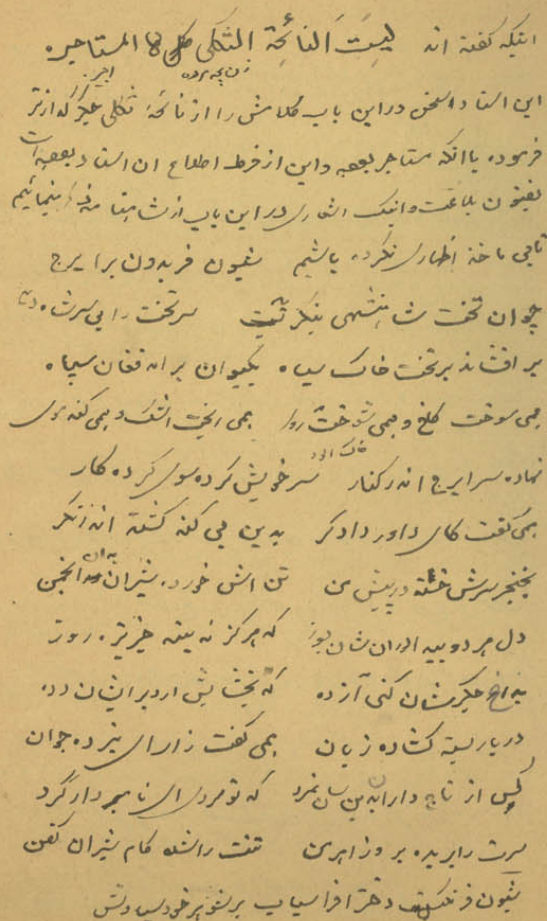 اینکه گفته اند لیست النائحة الثکلی کالمستاجره
این استاد سخن در این باب کلامش را از نائحهٔ ثکلی جگرگدازتر
فرموده باآنکه مستاجر بوده و این از فرط اطلاع ان استاد بوده است
بفنون بلاغت و اینک اشعاری در این باب از شاهنامه مینمائیم
تا بی ماخذ اظهاری نکرده باشیم شیون فریدون برایرج
چوان تخت شاهنشهی بنگریست سر تخت را بی سر شاه دید
بر افشاند بر تخت خاک سیاه بکیوان برامد فغان سپاه
همی سوخت کاخ و همی خست روی همی ریخت اشک و همی کند موی
نهاده سر ایرج اندر کنار سر خویش کرده سوی کردگار
همی گفت کای داور دادگر بدین بی گنه کشته اندر نگر
بخنجر سرش خسته در پیش من تنش خورده شیران آن انجمن
دل هر دو بیداد از ان سان بسوز که هرگز نه بینند جز تیره روز
بداغی جگرشان کنی آژده که بخشایش ارد بر ایشان دده
در بار بسته گشاده زبان همی گفت زار ای نبرده جوان
کس از تاج داران بدین سان نمرد که تو مردی ای نامبردار گرد
سرت را بریده بروز اهرمن تنت را شده کام شیران کفن
شیون فرنگیس دختر افراسیاب بر شوهر خود سیاوش